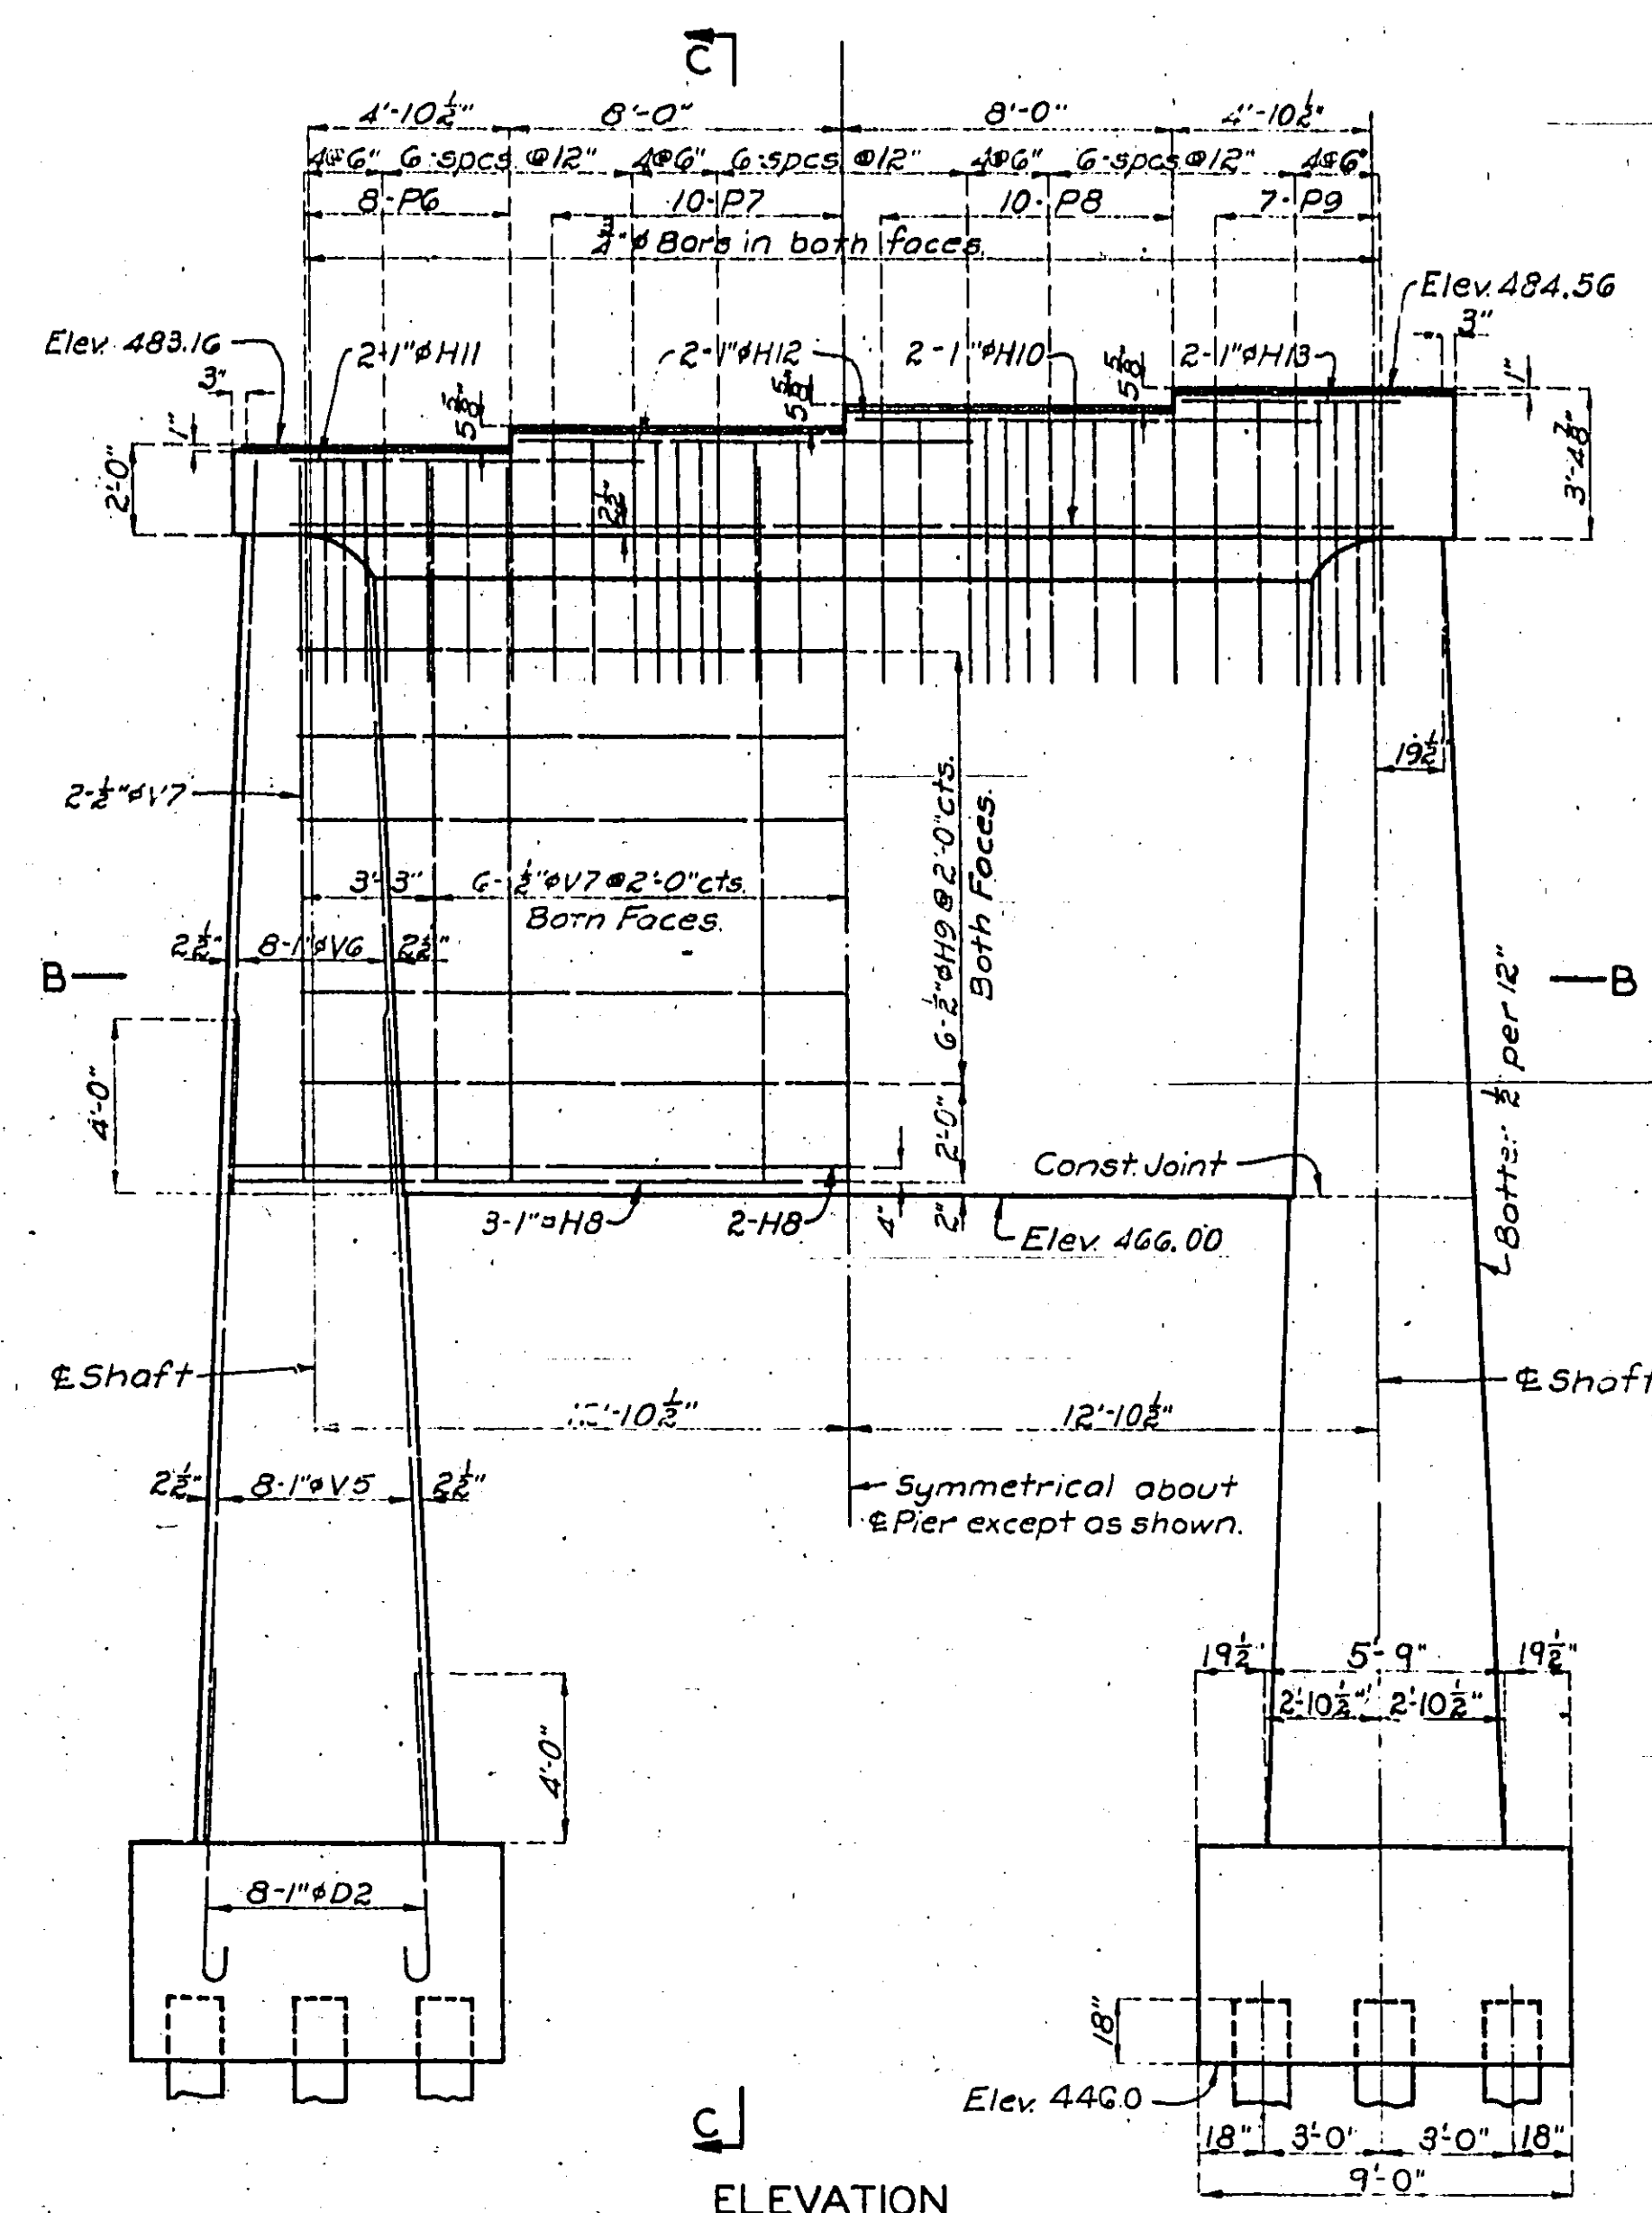 C
4'-10½" 8'-0" 8'-0" 4'-10½"
4@6" 6-spcs. @12" 4@6" 6-spcs. @12" 4@6" 6-spcs. @12" 4@6"
8-P6 10-P7 10-P8 7-P9
¾"ϕ Bars in both faces.
Elev. 484.56
3"
Elev. 483.16
2-1"ϕH11 2-1"ϕH12 2-1"ϕH10 2-1"ϕH13
3"
1"
2'-0"
5⅝"
5⅝"
5⅝"
1"
3'-4⅞"
2½"
19½"
2-½"ϕV7
6-½"ϕH9@2'-0"cts.
Both Faces.
3'-3" 6-½"ϕV7@2'-0"cts.
Both Faces.
2½" 8-1"ϕV6 2½"
B B
Batter ½ per 12"
4'-0"
2'-0"
Const. Joint
3-1"▫H8 2-H8 4" 2"
Elev. 466.00
℄ Shaft ℄ Shaft
'-10½" 12'-10½"
2½" 8-1"ϕV5 2½"
Symmetrical about
℄ Pier except as shown.
19½" 5'-9" 19½"
2'-10½" 2'-10½"
4'-0"
8-1"ϕD2
18"
Elev. 446.0
18" 3'-0" 3'-0" 18"
9'-0"
C
ELEVATION